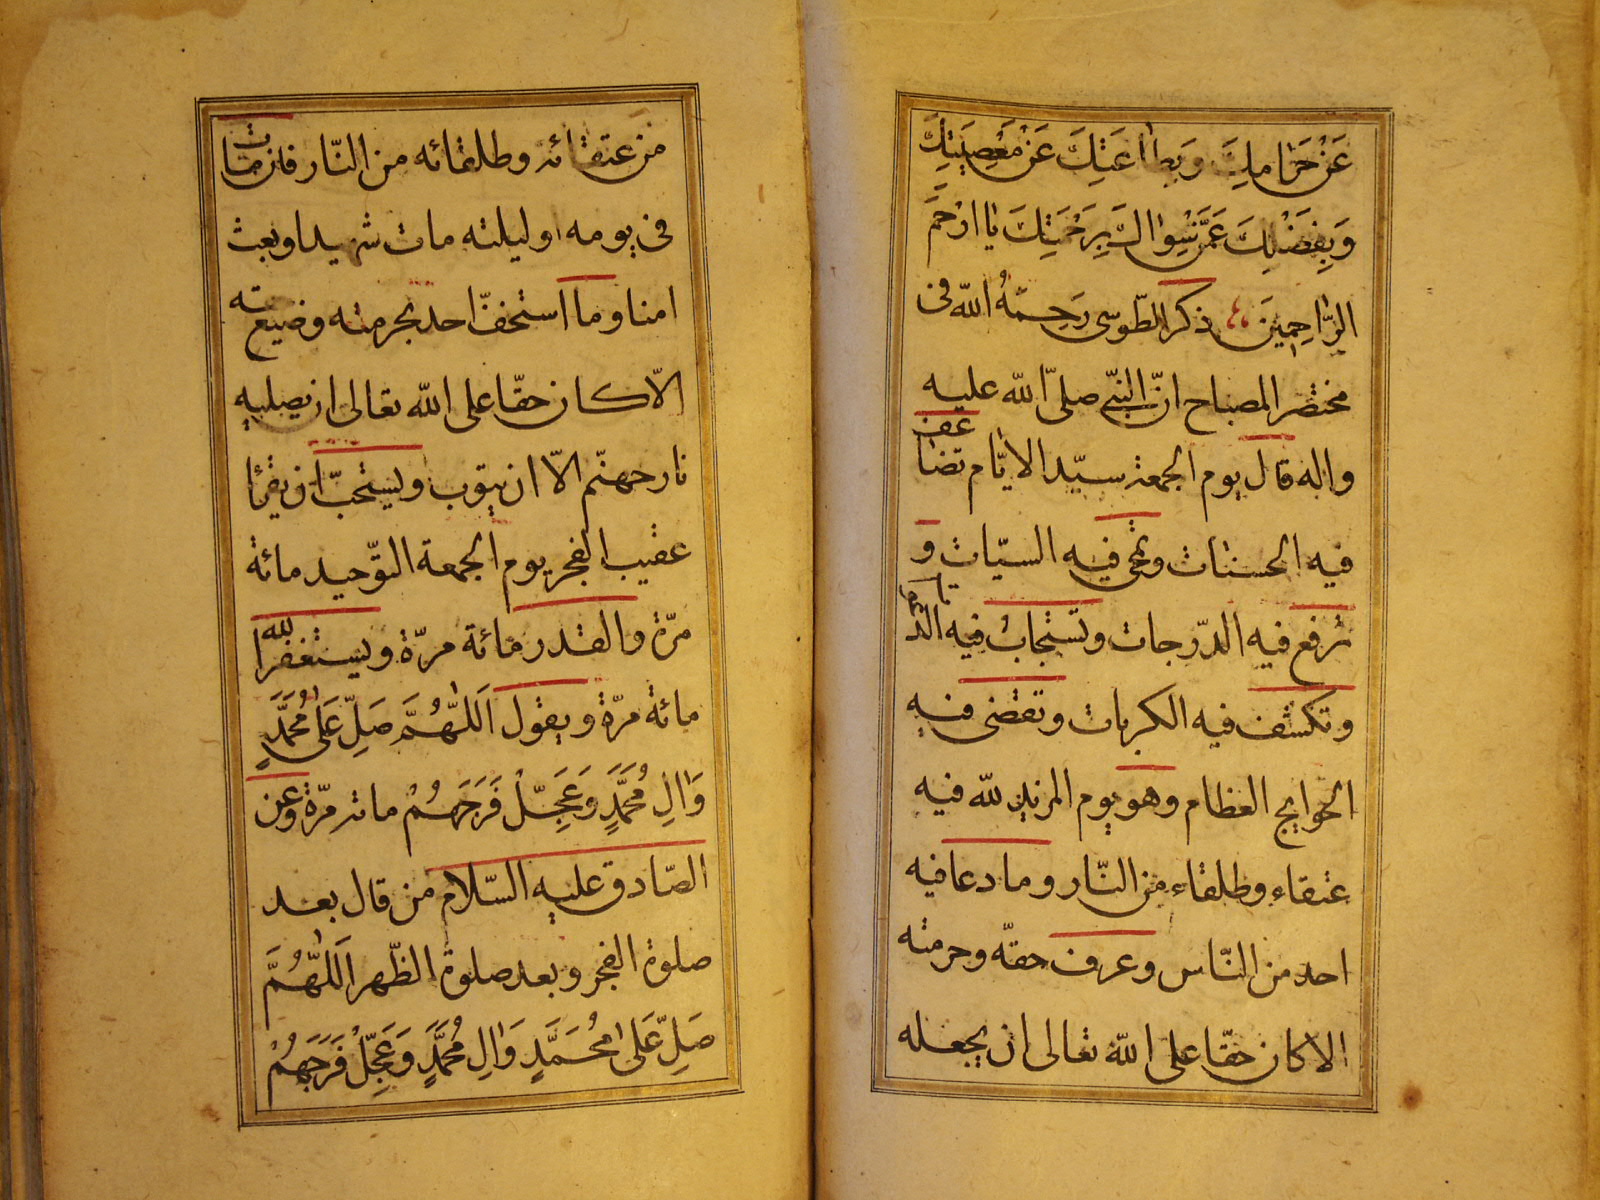 عَنْ حَرٰامِكَ وَبِطٰاعَتِكَ عَنْ مَعْصِيَتِكَ
وَبِفَضْلِكَ عَمَّنْ سِوٰاكَ بِرَحْمَتِكَ يٰا اَرْحَمَ
الرّٰاحِمِينَ ذكر الطّوسى رَحِمَهُ اللّه فى
مختصر المصباح انّ النبّى صلىّ اللّه عليه
واله قال يوم الجمعة سيّد الايّام تضاعف
فيه الحسنات وتمحى فيه السيّات و
ترفع فيه الدّرجات وتستجاب فيه الدّعاء
وتكشف فيه الكربات وتقضى فيه
الحوايج العظام وهو يوم المزيد للّه فيه
عتقاء وطلقاء من النّار وما دعا فيه
احد من النّاس وعرف حقهّ وحرمته
الا كان حقّا على اللّه تعالى ان يجعله
من عتقائه وطلقائه من النّار فان مات
فى يومه او ليلته مات شهيدا وبعث
امنا وما استخفّ احد بحرمته وضيع حقه
الاّ كان حقّا على اللّه تعالى ان يصليه
نار جهنّم الاّ ان يتوب ويستحبّ ان يقرأ
عقيب الفجر يوم الجمعة التوّحيد مائة
مرّة والقدر مائة مرّة ويستغفر اللّه
مائة مرّة ويقول اَللّٰهُمَّ صَلِّ عَلىٰ مُحَمَّدٍ
وَاٰلِ مُحَمَّدٍ وَعَجِّلْ فَرَجَهُمْ مائة مرّة وعن
الصّادق عليه السّلام من قال بعد
صلوة الفجر وبعد صلوة الظّهر اَللّٰهُمَّ
صَلِّ عَلىٰ مُحَمَّدٍ وَاٰلِ مُحَمَّدٍ وَعَجِّلْ فَرَجَهُمْ